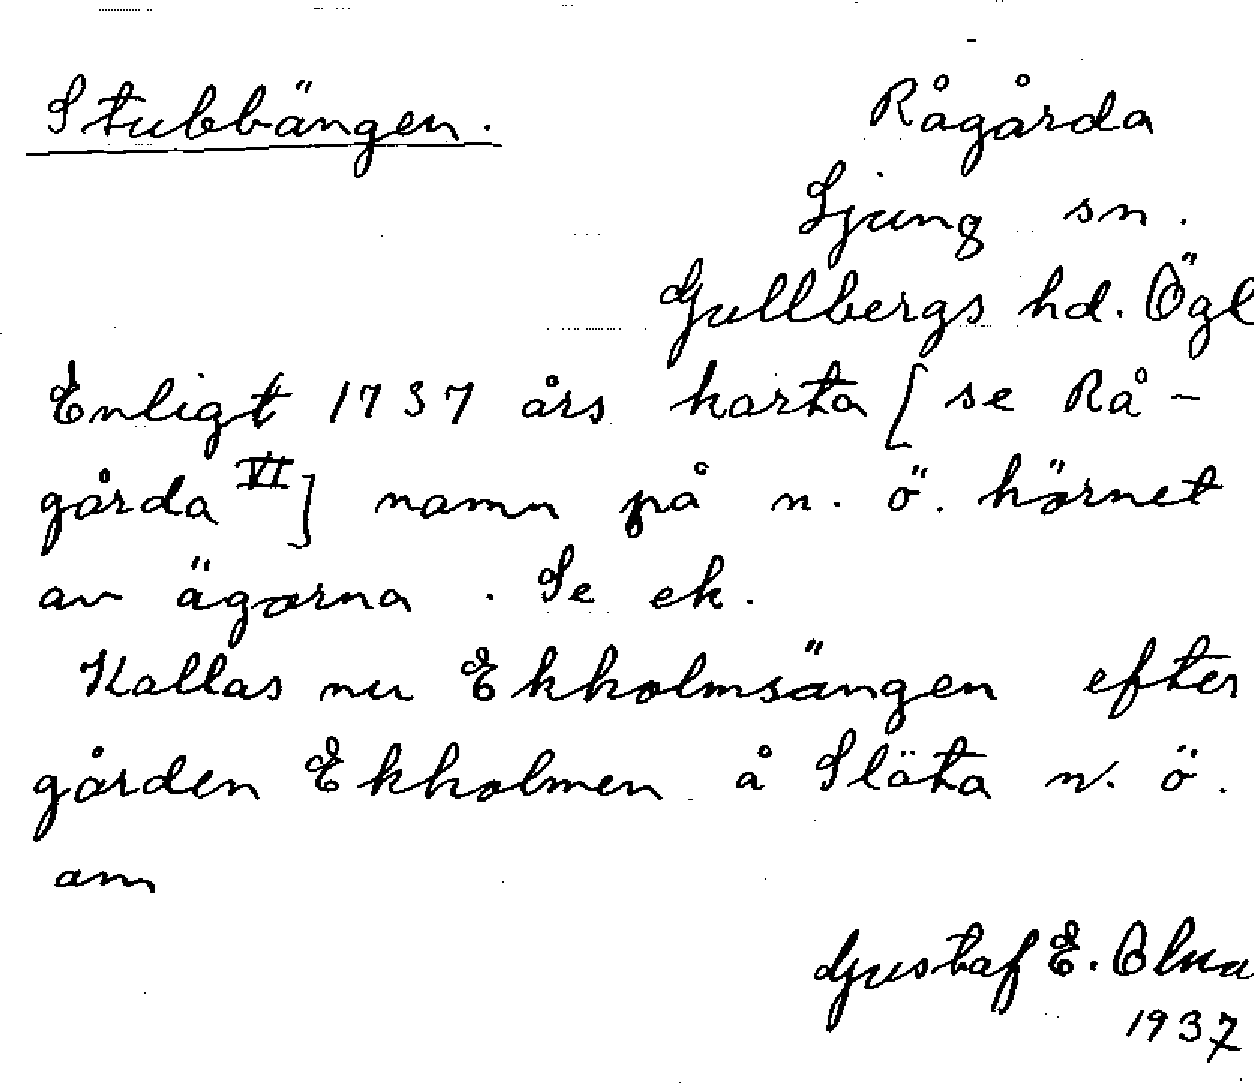 Stubbängen.
Rågårda
Ljung sn.
Gullbergs hd. Ögl
Enligt 1737 års karta [se Rå-
gårda VI] namn på n. ö. hörnet
av ägorna. Se ek.
Kallas nu Ekholmsängen efter
gården Ekholmen å Släta n. ö.
om
Gustaf E.
1937